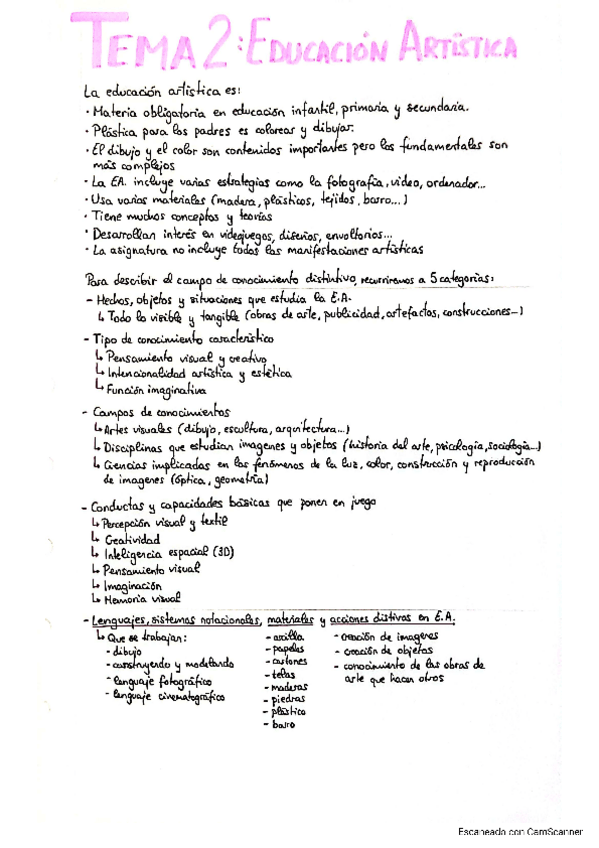 TEMA 2: EDUCACIÓN ARTÍSTICA
La educación artística es:
· Materia obligatoria en educación infantil, primaria y secundaria.
· Plástica para los padres es colorear y dibujar.
· El dibujo y el color son contenidos importantes pero los fundamentales son
más complejos
· La EA. incluye varias estrategias como la fotografía, video, ordenador...
· Usa varios materiales (madera, plásticos, tejidos, barro...)
· Tiene muchos conceptos y teorías
· Desarrollan interés en videjuegos, diseños, envoltorios...
· La asignatura no incluye todas las manifestaciones artísticas
Para describir el campo de conocimiento distintivo, recurriremos a 5 categorías:
- Hechos, objetos y situaciones que estudia la E.A.
↳ Todo lo visible y tangible (obras de arte, publicidad, artefactos, construcciones...)
- Tipo de conocimiento característico
↳ Pensamiento visual y creativo
↳ Intencionalidad artística y estética
↳ Función imaginativa
- Campos de conocimientos
↳ Artes visuales (dibujo, escultura, arquitectura...)
↳ Disciplinas que estudian imagenes y objetos (historia del arte, psicología, sociología...)
↳ Ciencias implicadas en los fenómenos de la luz, color, construcción y reproducción
de imagenes (óptica, geometría)
- Conductas y capacidades básicas que ponen en juego
↳ Percepción visual y textil
↳ Creatividad
↳ Inteligencia espacial (3D)
↳ Pensamiento visual
↳ Imaginación
↳ Memoria visual
- Lenguajes, sistemas notacionales, materiales y acciones distivas en E.A.
↳ Que se trabajan:
- dibujo
- construyendo y modelando
- lenguaje fotográfico
- lenguaje cinematográfico
- arcilla
- papeles
- cartones
- telas
- maderas
- piedras
- plástico
- barro
- creación de imagenes
- creación de objetos
- conocimiento de las obras de
arte que hacen otros
Escaneado con CamScanner